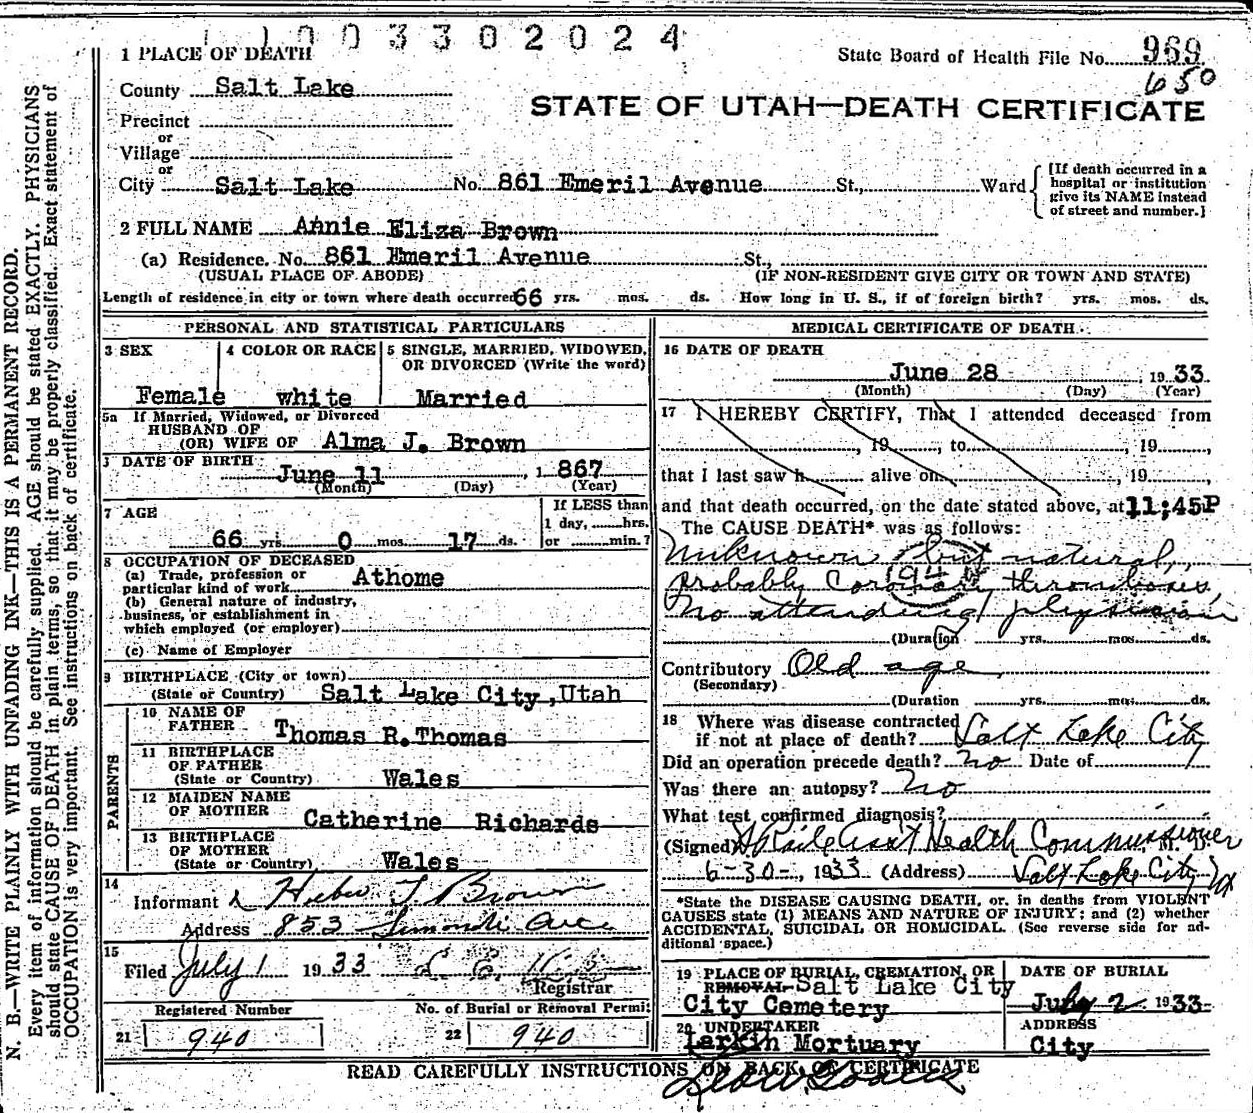 1003302024
1 PLACE OF DEATH
State Board of Health File No. 969
650
County Salt Lake
STATE OF UTAH—DEATH CERTIFICATE
Precinct
or
Village
or
City Salt Lake No. 861 Emeril Avenue St., Ward
[If death occurred in a
hospital or institution
give its NAME instead
of street and number.]
2 FULL NAME Annie Eliza Brown
(a) Residence. No. 861 Emeril Avenue St.,
(USUAL PLACE OF ABODE) (IF NON-RESIDENT GIVE CITY OR TOWN AND STATE)
Length of residence in city or town where death occurred 66 yrs. mos. ds. How long in U. S., if of foreign birth? yrs. mos. ds.
PERSONAL AND STATISTICAL PARTICULARS
3 SEX
Female
4 COLOR OR RACE
white
5 SINGLE, MARRIED, WIDOWED,
OR DIVORCED (Write the word)
Married
5a If Married, Widowed, or Divorced
HUSBAND OF
(OR) WIFE OF Alma J. Brown
DATE OF BIRTH
June 11, 1867
(Month) (Day) (Year)
7 AGE
66 yrs 0 mos. 17 ds.
If LESS than
1 day, hrs.
or min.?
8 OCCUPATION OF DECEASED
(a) Trade, profession or
particular kind of work Athome
(b) General nature of industry,
business, or establishment in
which employed (or employer)
(c) Name of Employer
9 BIRTHPLACE (City or town)
(State or Country) Salt Lake City, Utah
PARENTS
10 NAME OF
FATHER Thomas R. Thomas
11 BIRTHPLACE
OF FATHER
(State or Country) Wales
12 MAIDEN NAME
OF MOTHER Catherine Richards
13 BIRTHPLACE
OF MOTHER
(State or Country) Wales
14
Informant Heber T Brown
Address 853 Ave
15
Filed July 1 1933
Registrar
Registered Number
21 940
No. of Burial or Removal Permit
22 940
MEDICAL CERTIFICATE OF DEATH
16 DATE OF DEATH
June 28, 1933
(Month) (Day) (Year)
17 I HEREBY CERTIFY, That I attended deceased from
, 19 , to , 19 ,
that I last saw h alive on , 19 ,
and that death occurred, on the date stated above, at 11;45P
The CAUSE DEATH* was as follows:
Unknown but natural,
probably Coronary thromboses
94
No attending physician
(Duration yrs. mos. ds.
Contributory Old age
(Secondary)
(Duration yrs. mos. ds.
18 Where was disease contracted
if not at place of death? Salt Lake City
Did an operation precede death? no Date of
Was there an autopsy? no
What test confirmed diagnosis?
(Signed) Asst Health Commissioner M. D.
6-30-, 1933 (Address) Salt Lake City Ut
*State the DISEASE CAUSING DEATH, or in deaths from VIOLENT
CAUSES state (1) MEANS AND NATURE OF INJURY; and (2) whether
ACCIDENTAL, SUICIDAL OR HOMICIDAL. (See reverse side for ad-
ditional space.)
19 PLACE OF BURIAL, CREMATION, OR
REMOVAL Salt Lake City
City Cemetery
DATE OF BURIAL
July 2 1933
20 UNDERTAKER
Larkin Mortuary
ADDRESS
City
READ CAREFULLY INSTRUCTIONS ON BACK OF CERTIFICATE
N. B.—WRITE PLAINLY WITH UNFADING INK—THIS IS A PERMANENT RECORD.
Every item of information should be carefully supplied. AGE should be stated EXACTLY. PHYSICIANS
should state CAUSE OF DEATH in plain terms, so that it may be properly classified. Exact statement of
OCCUPATION is very important. See instructions on back of certificate.